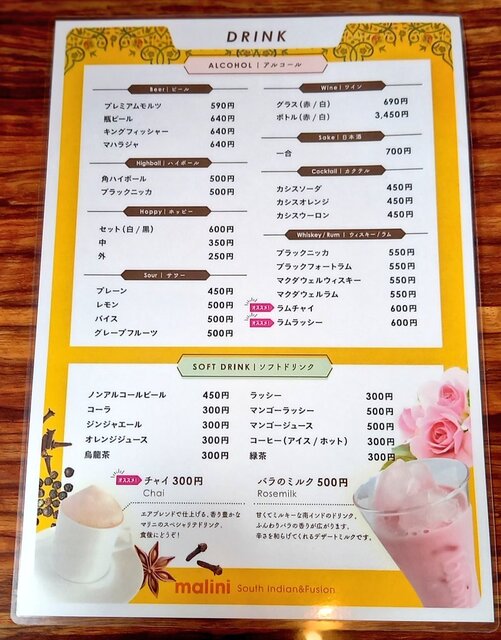 DRINK
ALCOHOL | アルコール
Beer | ビール
プレミアムモルツ 590円
瓶ビール 640円
キングフィッシャー 640円
マハラジャ 640円
Highball | ハイボール
角ハイボール 500円
ブラックニッカ 500円
Hoppy | ホッピー
セット(白/黒) 600円
中 350円
外 250円
Sour | サワー
プレーン 450円
レモン 500円
バイス 500円
グレープフルーツ 500円
Wine | ワイン
グラス(赤/白) 690円
ボトル(赤/白) 3,450円
Sake | 日本酒
一合 700円
Cocktail | カクテル
カシスソーダ 450円
カシスオレンジ 450円
カシスウーロン 450円
Whiskey/Rum | ウィスキー/ラム
ブラックニッカ 550円
ブラックフォートラム 550円
マクダウェルウィスキー 550円
マクダウェルラム 550円
オススメ! ラムチャイ 600円
オススメ! ラムラッシー 600円
SOFT DRINK | ソフトドリンク
ノンアルコールビール 450円
コーラ 300円
ジンジャエール 300円
オレンジジュース 300円
烏龍茶 300円
ラッシー 300円
マンゴーラッシー 500円
マンゴージュース 500円
コーヒー(アイス/ホット) 300円
緑茶 300円
オススメ! チャイ 300円
Chai
エアブレンドで仕上げる、香り豊かな
マリニのスペシャリテドリンク。
食後にどうぞ!
バラのミルク 500円
Rosemilk
甘くてミルキーな南インドのドリンク。
ふんわりバラの香りが広がります。
辛さを和らげてくれるデザートミルクです。
malini South Indian&Fusion